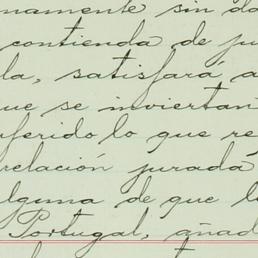 namente sin da
contienda de ju
la, satisfará a
ue se inviertan
ferido lo que re
relación jurada
lguna de que l
Portugal, añad